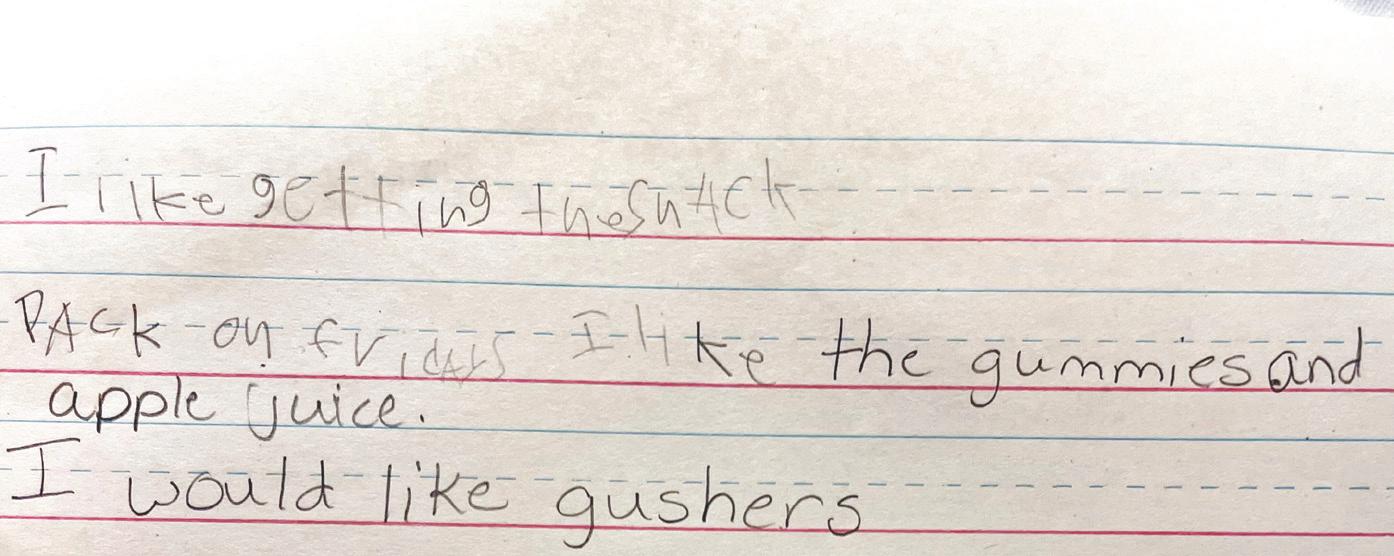 I like getting the snAck
PAck on fridAys I like the gummies and
apple juice.
I would like gushers